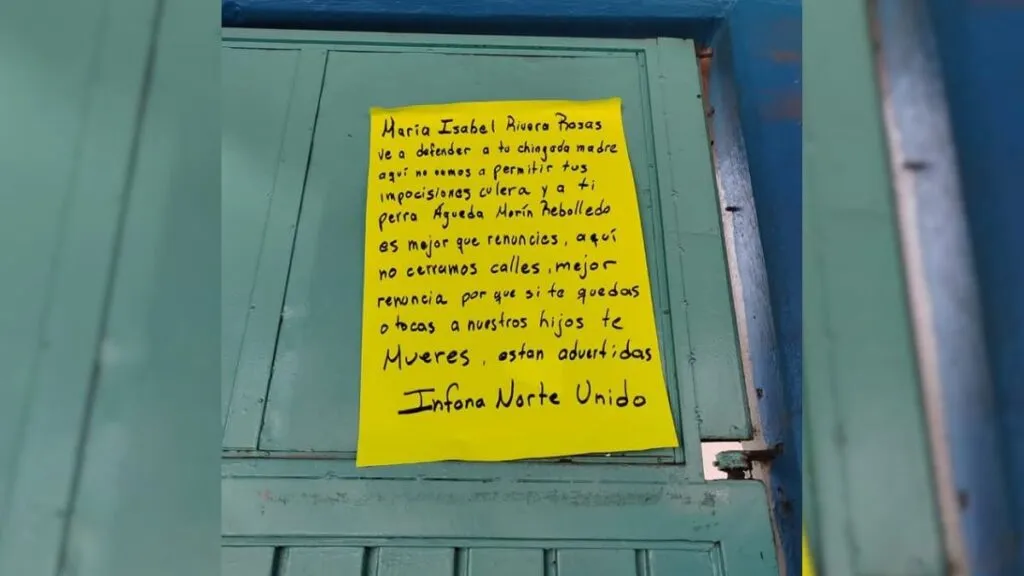 María Isabel Rivera Rosas
ve a defender a tu chingada madre
aquí no vamos a permitir tus
impocisiones culera y a ti
perra Águeda Morín Rebolledo
es mejor que renuncies, aquí
no cerramos calles, mejor
renuncia por que si te quedas
o tocas a nuestros hijos te
Mueres, estan advertidas
Infona Norte Unido